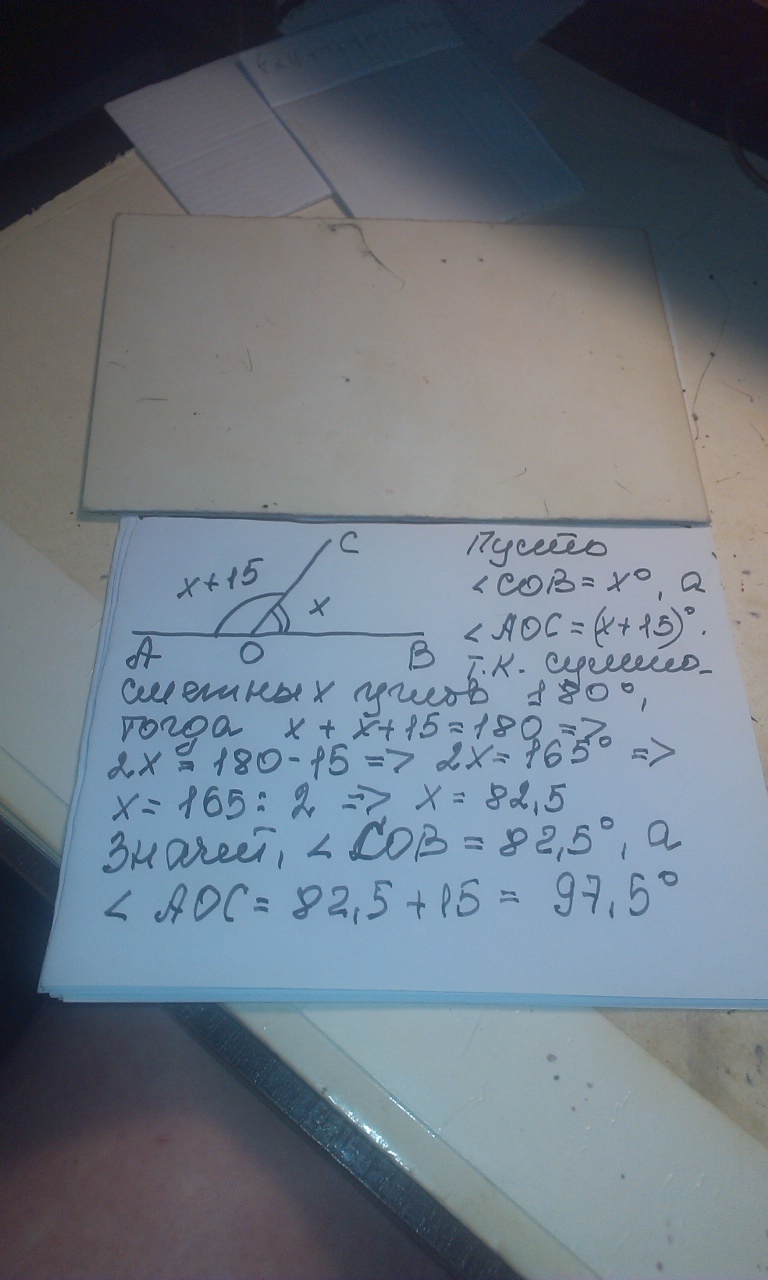 C
x+15
x
A O B
Пусть
∠COB = x°, а
∠AOC = (x+15)°.
Т.к. сумма
смежных углов 180°,
тогда x + x+15 = 180 =>
2x = 180-15 => 2x = 165° =>
x = 165 : 2 => x = 82,5
Значит, ∠COB = 82,5°, а
∠AOC = 82,5 + 15 = 97,5°